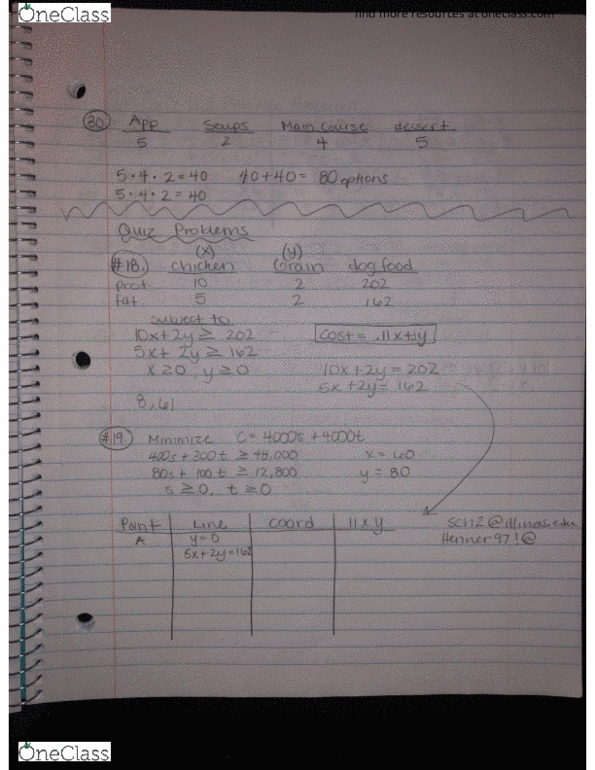 OneClass
find more resources at oneclass.com
30. App Soups Main Course dessert
5 2 4 5
5 · 4 · 2 = 40 40 + 40 = 80 options
5 · 4 · 2 = 40
Quiz Problems
(x) (y)
#18. chicken Grain dog food
prot. 10 2 202
fat. 5 2 162
subject to
10x + 2y ≥ 202
cost = .11x +
5x + 2y ≥ 162
x ≥ 0 , y ≥ 0
10x + 2y = 202
5x + 2y = 162
8, 61
#19. Minimize C = 4000s + 4000t
400s + 300t ≥ 48,000 x = 60
80s + 100t ≥ 12,800 y = 80
s ≥ 0, t ≥ 0
Point Line coord 11xy
A y = 0
5x + 2y = 162
OneClass